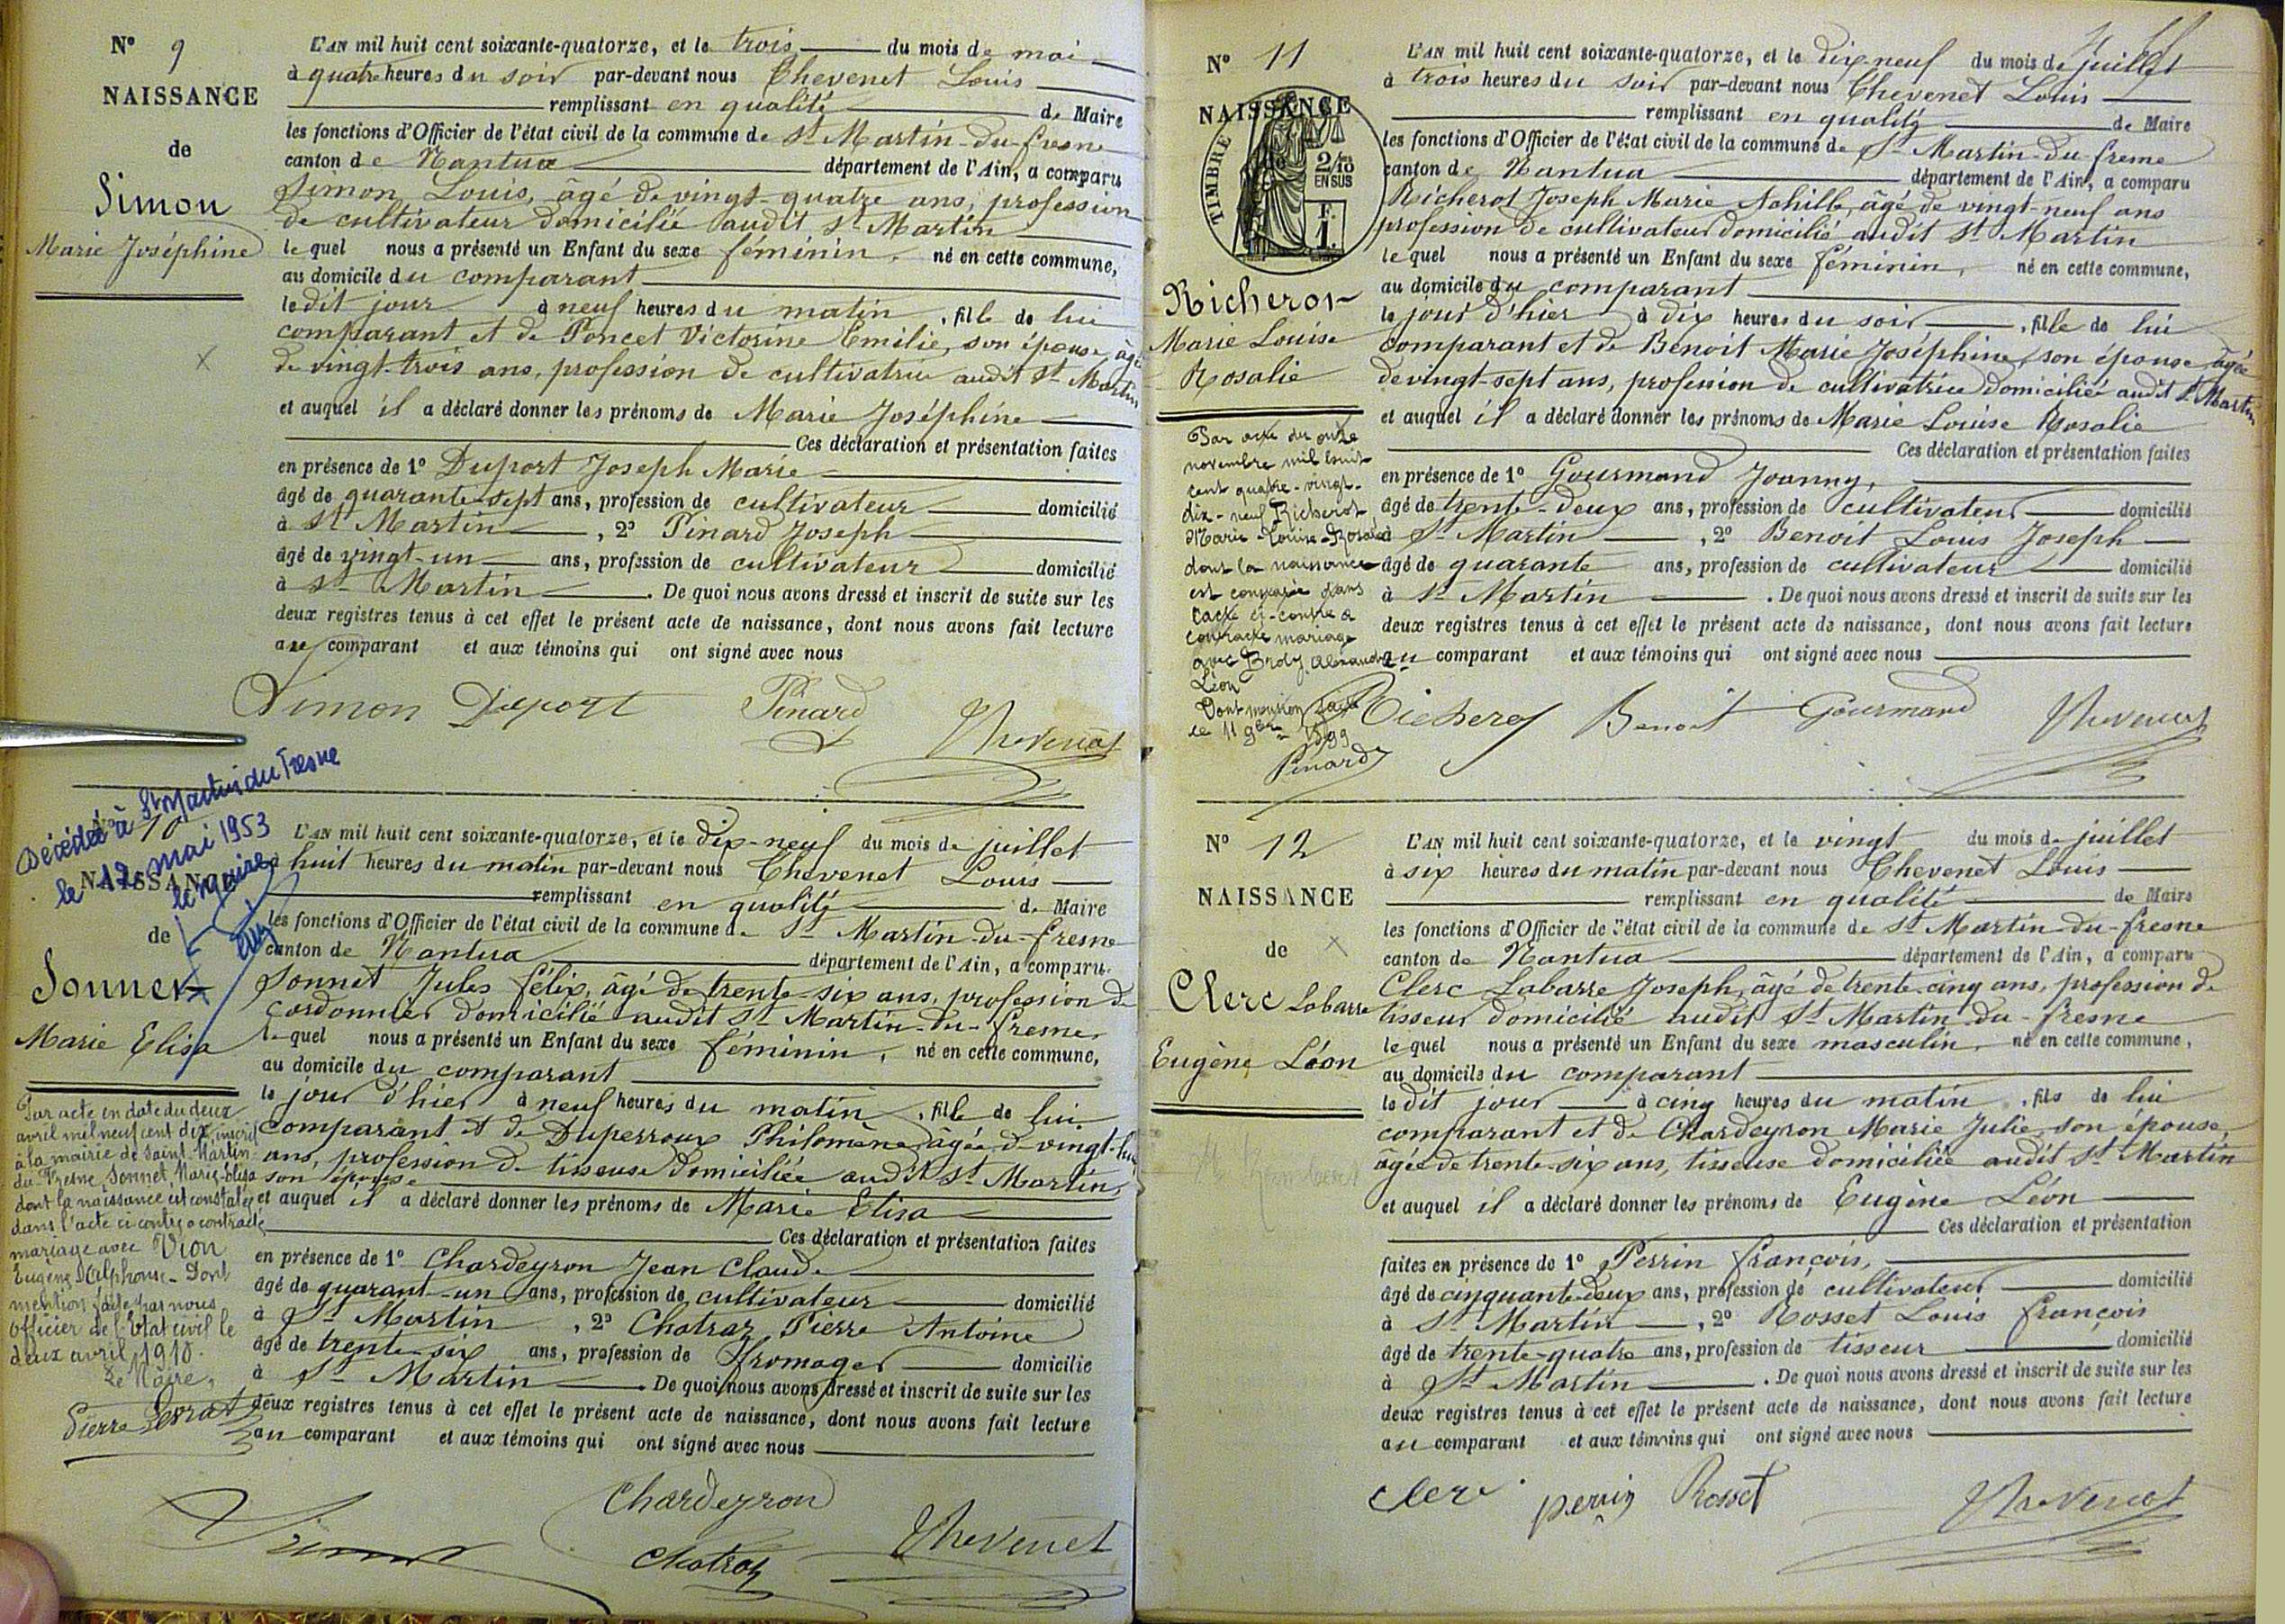 N° 9
NAISSANCE
de
Simon
Marie Joséphine
L'AN mil huit cent soixante-quatorze, et le trois du mois de mai
à quatre heures du soir par-devant nous Chevenet Louis
remplissant en qualité de Maire
les fonctions d'Officier de l'état civil de la commune de St Martin-du-fresne
canton de Nantua département de l'Ain, a comparu
Simon Louis, âgé de vingt-quatre ans, profession
de cultivateur domicilié audit St Martin
le quel nous a présenté un Enfant du sexe féminin, né en cette commune,
au domicile du comparant
le dit jour à neuf heures du matin, fille de lui
comparant et de Poncet Victorine Emilie, son épouse, âgée
de vingt-trois ans, profession de cultivatrice audit St Martin
et auquel il a déclaré donner les prénoms de Marie Joséphine
Ces déclaration et présentation faites
en présence de 1° Duport Joseph Marie
âgé de quarante-sept ans, profession de cultivateur domicilié
à St Martin, 2° Pinard Joseph
âgé de vingt-un ans, profession de cultivateur domicilié
à St Martin. De quoi nous avons dressé et inscrit de suite sur les
deux registres tenus à cet effet le présent acte de naissance, dont nous avons fait lecture
au comparant et aux témoins qui ont signé avec nous
Simon Duport Pinard Chevenet
Décédée à St Martin du Fresne
le 12 mai 1953
le Maire
N° 10
NAISSANCE
de
Sonnet
Marie Elisa
Par acte en date du deux
avril mil neuf cent dix, inscrit
à la mairie de Saint-Martin-
du-Fresne, Sonnet, Marie-Elisa
dont la naissance est constatée
dans l'acte ci-contre a contracté
mariage avec Vion
Eugène Alphonse. Dont
mention faite par nous
Officier de l'Etat civil le
deux avril 1910.
Le Maire,
Pierre Perrat
L'AN mil huit cent soixante-quatorze, et le dix-neuf du mois de juillet
à huit heures du matin par-devant nous Chevenet Louis
remplissant en qualité de Maire
les fonctions d'Officier de l'état civil de la commune de St Martin-du-fresne
canton de Nantua département de l'Ain, a comparu
Sonnet Jules félix, âgé de trente-six ans, profession de
cordonnier domicilié audit St Martin-du-fresne,
le quel nous a présenté un Enfant du sexe féminin, né en cette commune,
au domicile du comparant
le jour d'hier à neuf heures du matin, fille de lui
comparant et de Duperroux Philomène âgée de vingt-huit
ans, profession de tisseuse domiciliée audit St Martin,
son épouse
et auquel il a déclaré donner les prénoms de Marie Elisa
Ces déclaration et présentation faites
en présence de 1° Chardeyron Jean Claude
âgé de quarant-un ans, profession de cultivateur domicilié
à St Martin, 2° Chatraz Pierre Antoine
âgé de trente-six ans, profession de fromager domicilié
à St Martin. De quoi nous avons dressé et inscrit de suite sur les
deux registres tenus à cet effet le présent acte de naissance, dont nous avons fait lecture
au comparant et aux témoins qui ont signé avec nous
Chardeyron
Chatraz Chevenet
N° 11
NAISSANCE
de
TIMBRE
2/10
EN SUS
F.
1.
Richerot
Marie Louise
Rosalie
Par acte du onze
novembre mil huit
cent quatre-vingt-
dix-neuf Richerot
Marie-Louise-Rosalie
dont la naissance
est constatée dans
l'acte ci-contre a
contracté mariage
avec Brody Alexandre
Léon
Dont mention faite
le 11 9bre 1899
Pinard
L'AN mil huit cent soixante-quatorze, et le dix-neuf du mois de juillet
à trois heures du soir par-devant nous Chevenet Louis
remplissant en qualité de Maire
les fonctions d'Officier de l'état civil de la commune de St Martin-du-fresne
canton de Nantua département de l'Ain, a comparu
Richerot Joseph Marie Achille, âgé de vingt-neuf ans
profession de cultivateur domicilié audit St Martin
le quel nous a présenté un Enfant du sexe féminin, né en cette commune,
au domicile du comparant
le jour d'hier à dix heures du soir, fille de lui
comparant et de Benoit Marie Joséphine, son épouse âgée
de vingt-sept ans, profession de cultivatrice domiciliée audit St Martin
et auquel il a déclaré donner les prénoms de Marie Louise Rosalie
Ces déclaration et présentation faites
en présence de 1° Gourmand Joanny,
âgé de trente-deux ans, profession de cultivateur domicilié
à St Martin, 2° Benoit Louis Joseph
âgé de quarante ans, profession de cultivateur domicilié
à St Martin. De quoi nous avons dressé et inscrit de suite sur les
deux registres tenus à cet effet le présent acte de naissance, dont nous avons fait lecture
au comparant et aux témoins qui ont signé avec nous
Richerot Benoit Gourmand Chevenet
N° 12
NAISSANCE
de
Clerc Labarre
Eugène Léon
L'AN mil huit cent soixante-quatorze, et le vingt du mois de juillet
à six heures du matin par-devant nous Chevenet Louis
remplissant en qualité de Maire
les fonctions d'Officier de l'état civil de la commune de St Martin-du-fresne
canton de Nantua département de l'Ain, a comparu
Clerc Labarre Joseph, âgé de trente-cinq ans, profession de
tisseur domicilié audit St Martin-du-fresne
le quel nous a présenté un Enfant du sexe masculin, né en cette commune,
au domicile du comparant
le dit jour à cinq heures du matin, fils de lui
comparant et de Chardeyron Marie Julie, son épouse,
âgée de trente-six ans, tisseuse domiciliée audit St Martin
et auquel il a déclaré donner les prénoms de Eugène Léon
Ces déclaration et présentation
faites en présence de 1° Perrin françois,
âgé de cinquante-deux ans, profession de cultivateur domicilié
à St Martin, 2° Rosset Louis françois
âgé de trente-quatre ans, profession de tisseur domicilié
à St Martin. De quoi nous avons dressé et inscrit de suite sur les
deux registres tenus à cet effet le présent acte de naissance, dont nous avons fait lecture
au comparant et aux témoins qui ont signé avec nous
Clerc perrin Rosset Chevenet